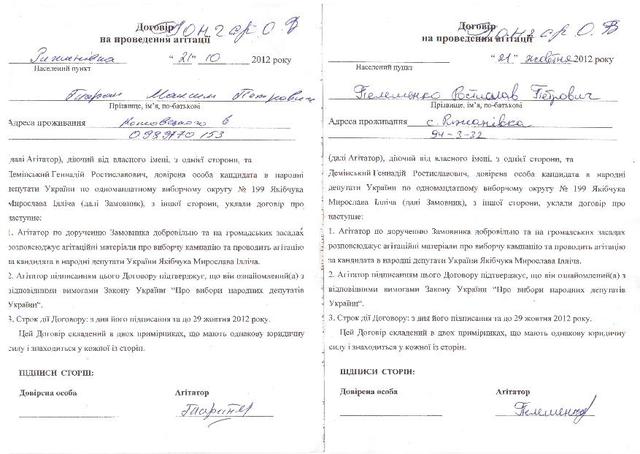 Договір
на проведення агітації
"21" 10 2012 року
Населений пункт
Максим Петрович
Прізвище, ім'я, по-батькові
Адреса проживання
(далі Агітатор), діючий від власного імені, з однієї сторони, та
Демінський Геннадій Ростиславович, довірена особа кандидата в народні
депутати України по одномандатному виборчому округу № 199 Якібчука
Мирослава Ілліча (далі Замовник), з іншої сторони, уклали договір про
наступне:
1. Агітатор по дорученню Замовника добровільно та на громадських засадах
розповсюджує агітаційні матеріали про виборчу кампанію та проводить агітацію
за кандидата в народні депутати України Якібчука Мирослава Ілліча.
2. Агітатор підписанням цього Договору підтверджує, що він ознайомлений(а) з
відповідними вимогами Закону України "Про вибори народних депутатів
України".
3. Строк дії Договору: з дня його підписання та до 29 жовтня 2012 року.
Цей Договір складений в двох примірниках, що мають однакову юридичну
силу і знаходиться у кожної із сторін.
ПІДПИСИ СТОРІН:
Довірена особа Агітатор
Договір
на проведення агітації
"21" жовтня 2012 року
Населений пункт
Пелеменко Ростислав Петрович
Прізвище, ім'я, по-батькові
Адреса проживання с. Рижанівка
94-3-32
(далі Агітатор), діючий від власного імені, з однієї сторони, та
Демінський Геннадій Ростиславович, довірена особа кандидата в народні
депутати України по одномандатному виборчому округу № 199 Якібчука
Мирослава Ілліча (далі Замовник), з іншої сторони, уклали договір про
наступне:
1. Агітатор по дорученню Замовника добровільно та на громадських засадах
розповсюджує агітаційні матеріали про виборчу кампанію та проводить агітацію
за кандидата в народні депутати України Якібчука Мирослава Ілліча.
2. Агітатор підписанням цього Договору підтверджує, що він ознайомлений(а) з
відповідними вимогами Закону України "Про вибори народних депутатів
України".
3. Строк дії Договору: з дня його підписання та до 29 жовтня 2012 року.
Цей Договір складений в двох примірниках, що мають однакову юридичну
силу і знаходиться у кожної із сторін.
ПІДПИСИ СТОРІН:
Довірена особа Агітатор
Пелеменко